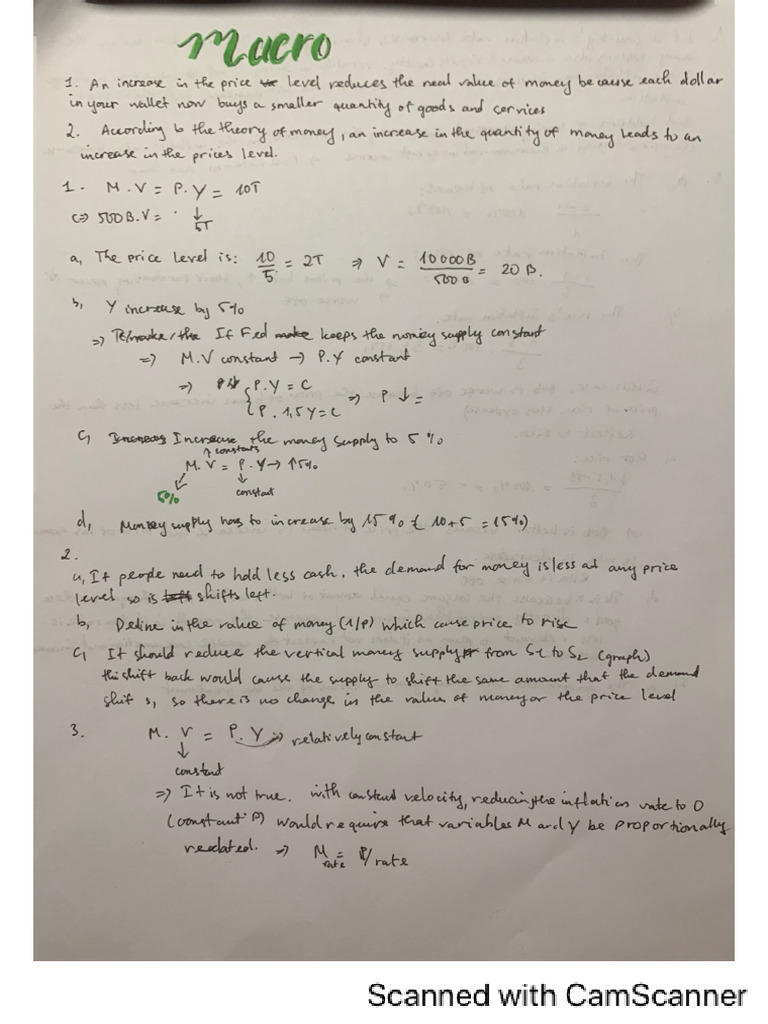 Macro
1. An increase in the price level reduces the real value of money because each dollar
in your wallet now buys a smaller quantity of goods and services
2. According to the theory of money, an increase in the quantity of money leads to an
increase in the prices level.
1. M.V = P.Y = 10T
<=> 500B.V = ↓
5T
a, The price level is: 10/5 = 2T => V = 10000B/500B = 20B.
b, Y increase by 5%
=> If Fed keeps the money supply constant
=> M.V constant → P.Y constant
=> { P.Y = C
P. 1,5Y = C => P ↓ =
c, Increase the money supply to 5%
↑ constant
M.V = P.Y → ↑5%
5% constant
d, Money supply has to increase by 15% { 10+5 = 15%)
2.
a, If people need to hold less cash, the demand for money is less at any price
level so is shifts left.
b, Decline in the value of money (1/P) which cause price to rise
c, It should reduce the vertical money supply from S1 to S2 (graph)
this shift back would cause the supply to shift the same amount that the demand
shifts, so there is no change in the value of money or the price level
3. M.V = P.Y → relatively constant
↓
constant
=> It is not true. with constant velocity, reducing the inflation rate to 0
(constant P) would require that variables M and Y be proportionally
realated. => M rate = Y/rate
Scanned with CamScanner